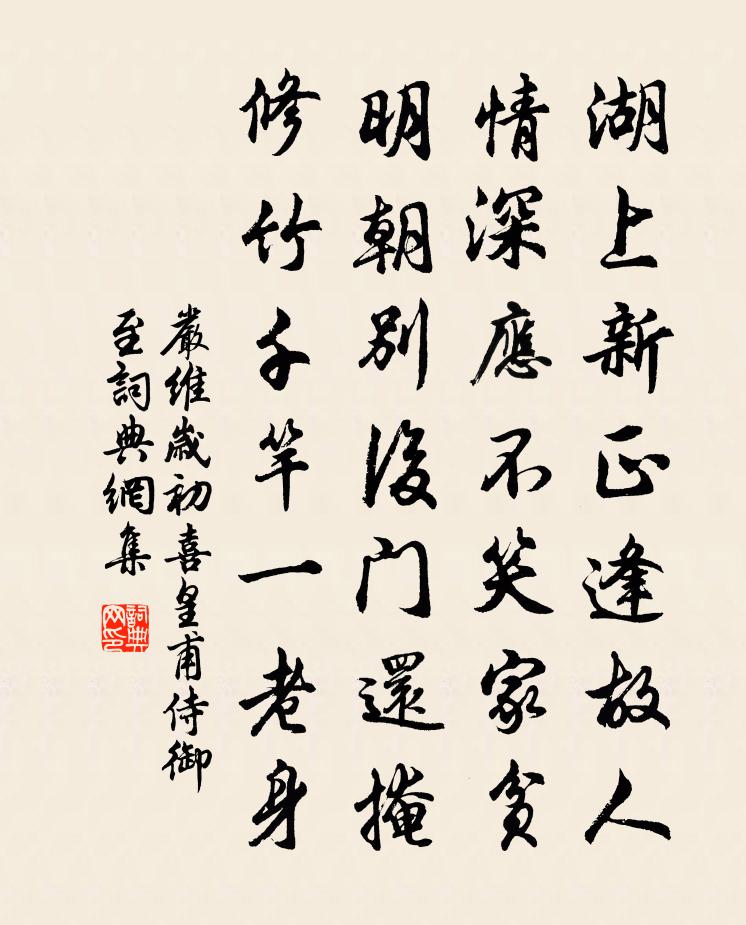 湖上新正逢故人
情深應不笑家貧
明朝別後门還掩
修竹千竿一老身
嚴維歲初喜皇甫侍御
至詞典網集
詞典
网印